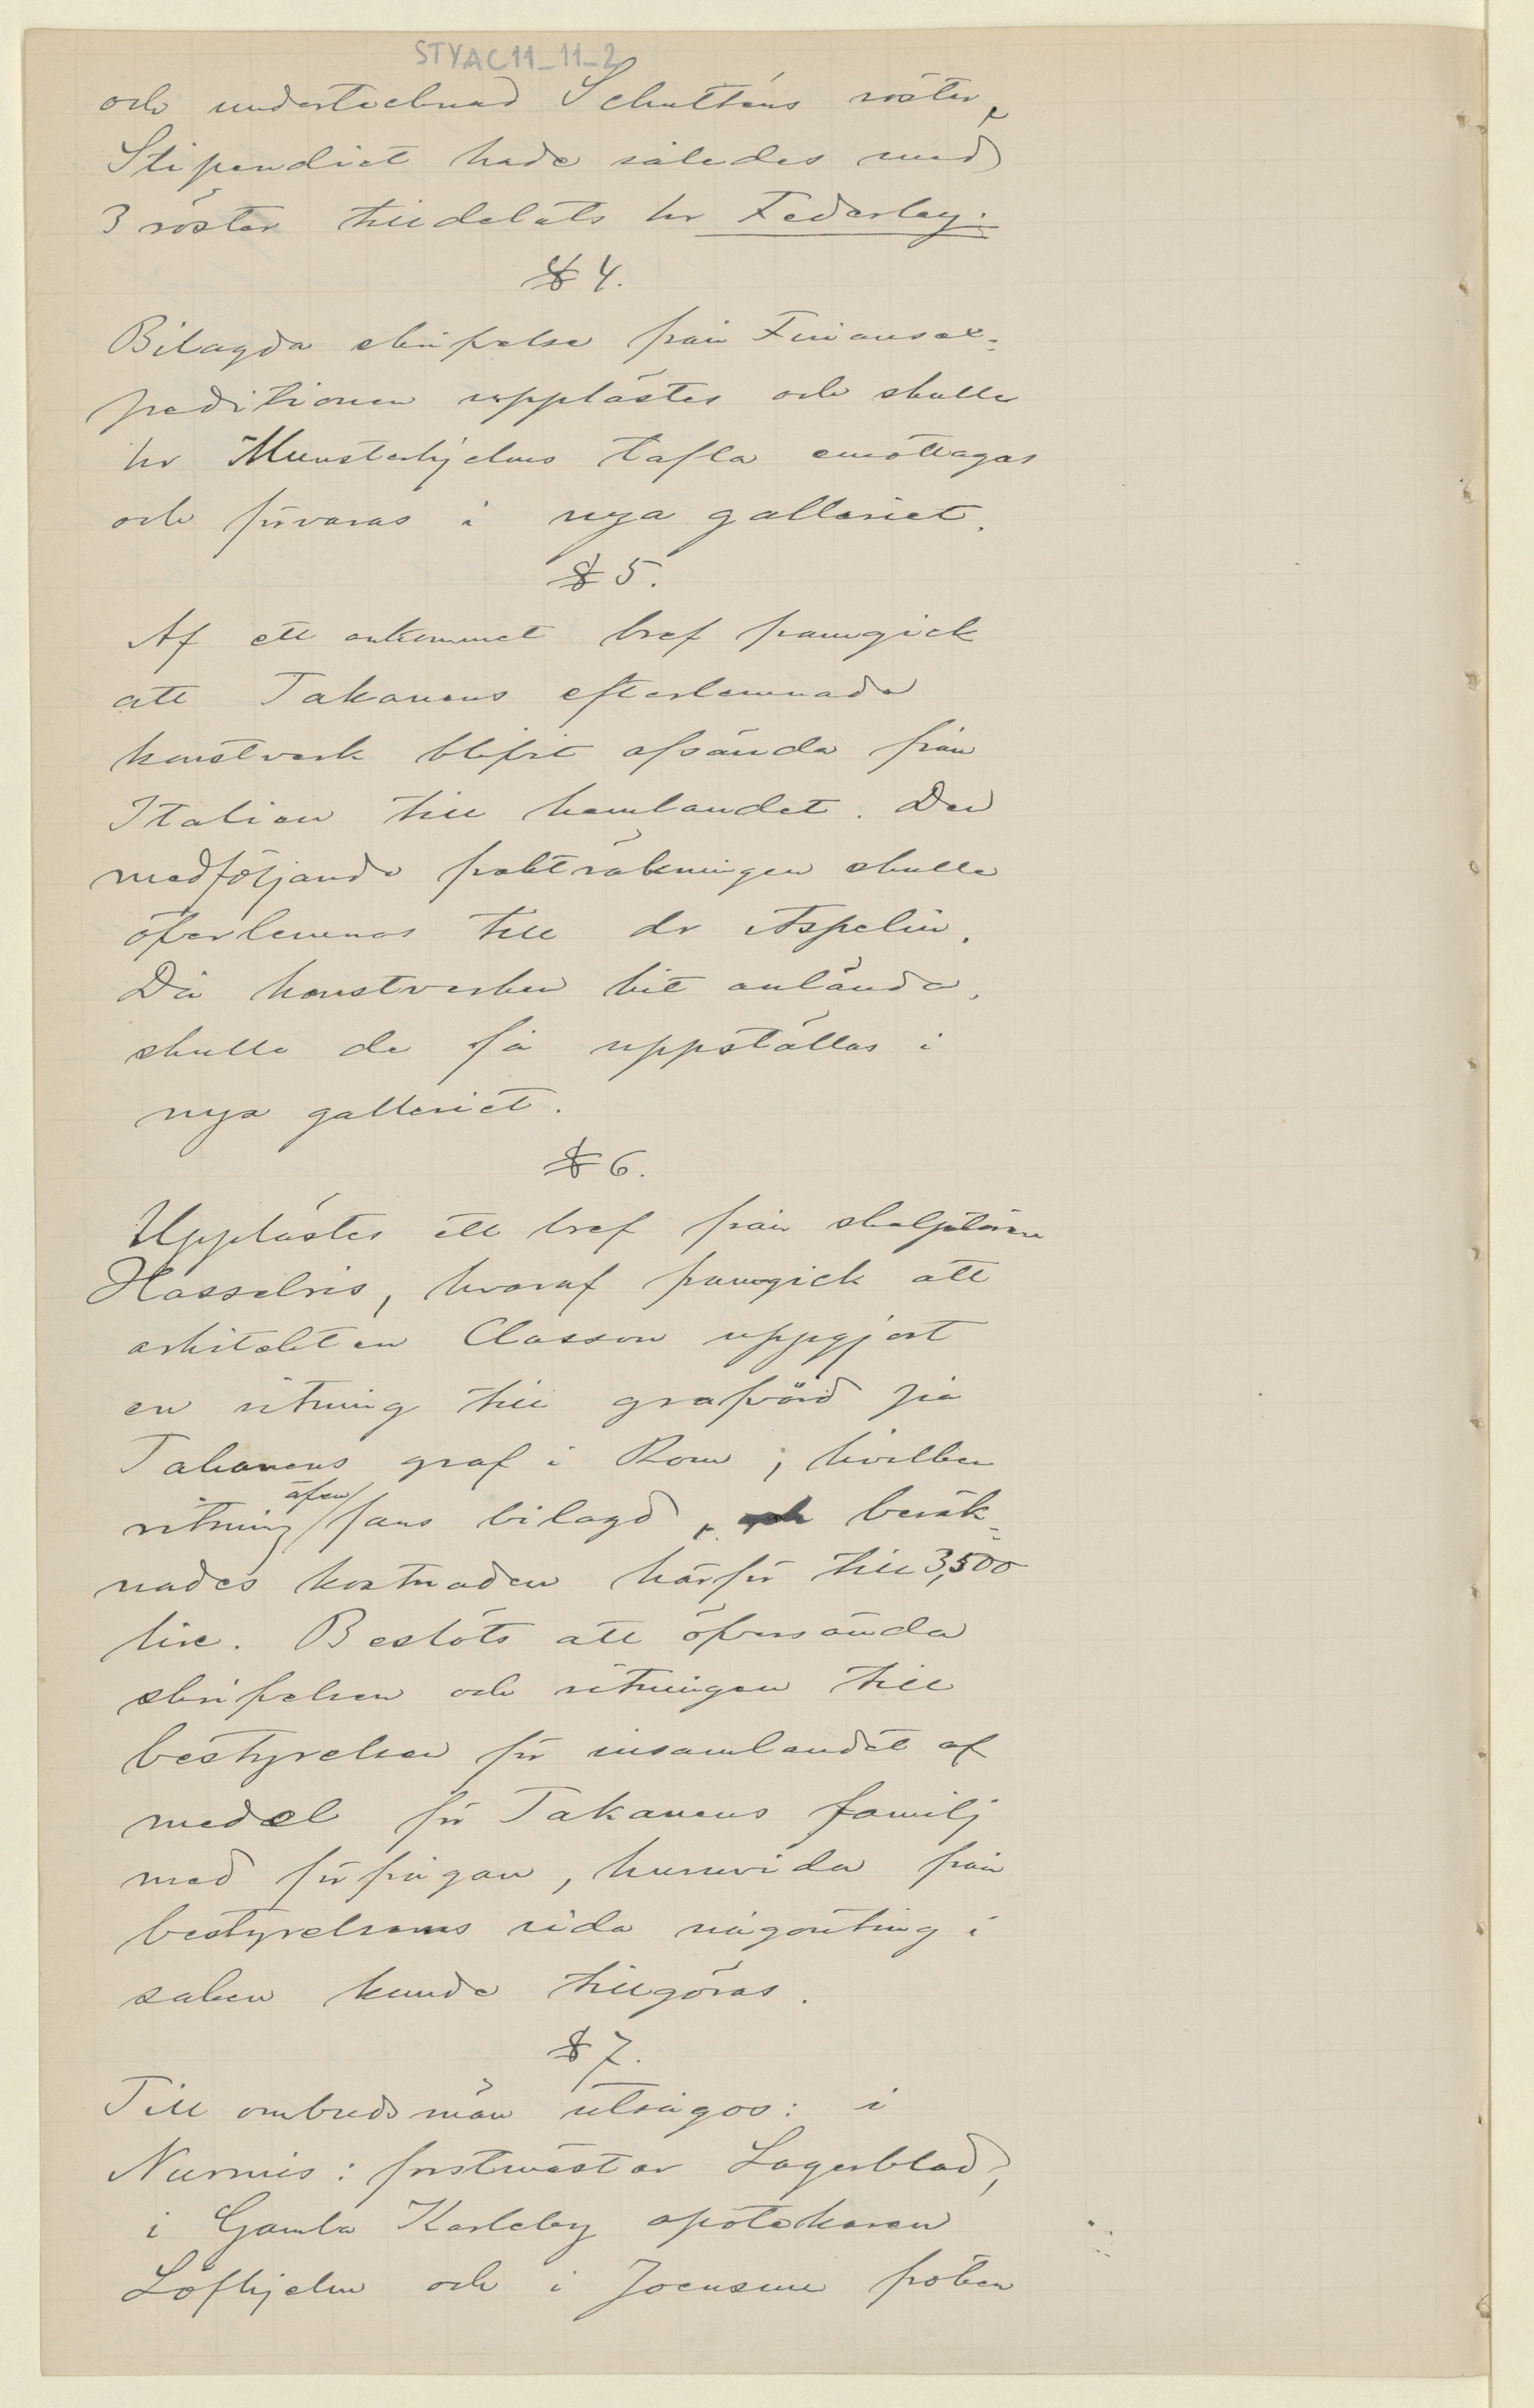 STYAC11_11_2
och undertecknad Schulténs röster,
Stipendiet hade således med
3 röster tilldelats hr Federley.
§ 4.
Bilagda skrifvelse från Finansex-
peditionen upplästes och skulle
hr Munsterhjelms tafla emottagas
och förvaras i nya galleriet.
§ 5.
Af ett ankommet bref framgick
att Takanens efterlemnade
konstverk blifvit afsända från
Italien till hemlandet. Den
medföljande frakträkningen skulle
öfverlemnas till dr Aspelin.
Då konstverken hit anlända,
skulle de få uppställas i
nya galleriet.
§ 6.
Upplästes ett bref från skulptören
Hasselriis, hvaraf framgick att
arkitekten Clason uppgjort
en ritning till grafvård på
Takanens graf i Rom; hvilken
ritning äfven fans bilagd, beräk-
nades kostnaden härför till 3,500
lire. Beslöts att öfversända
skrifvelsen och ritningen till
bestyrelsen för insamlandet af
medel för Takanens familj
med förfrågan, huruvida från
bestyrelsens sida någonting i
saken kunde tillgöras.
§ 7.
Till ombudsmän utsågos: i
Nurmis: forstmästar Lagerblad,
i Gamla Karleby apotekaren
Löfhjelm och i Joensuu fröken